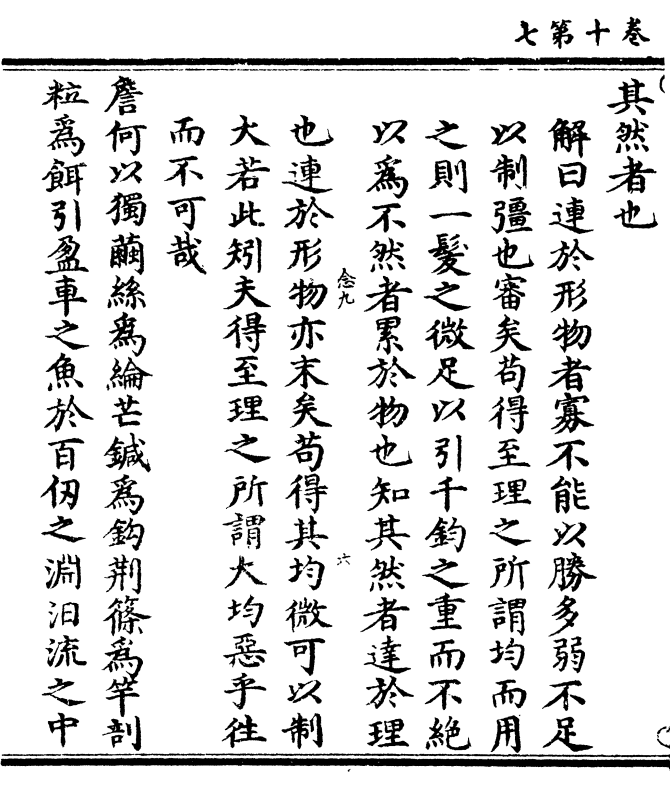 卷十第七
其然者也
解曰連於形物者寡不能以勝多弱不足
以制彊也審矣苟得至理之所謂均而用
之則一髮之微足以引千鈞之重而不絕
以爲不然者累於物也知其然者達於理
念九
六
也連於形物亦末矣苟得其均微可以制
大若此矧夫得至理之所謂大均惡乎徃
而不可哉
詹何以獨繭絲爲綸芒鍼爲鈎荆篠爲竿剖
粒爲餌引盈車之魚於百仭之淵汩流之中